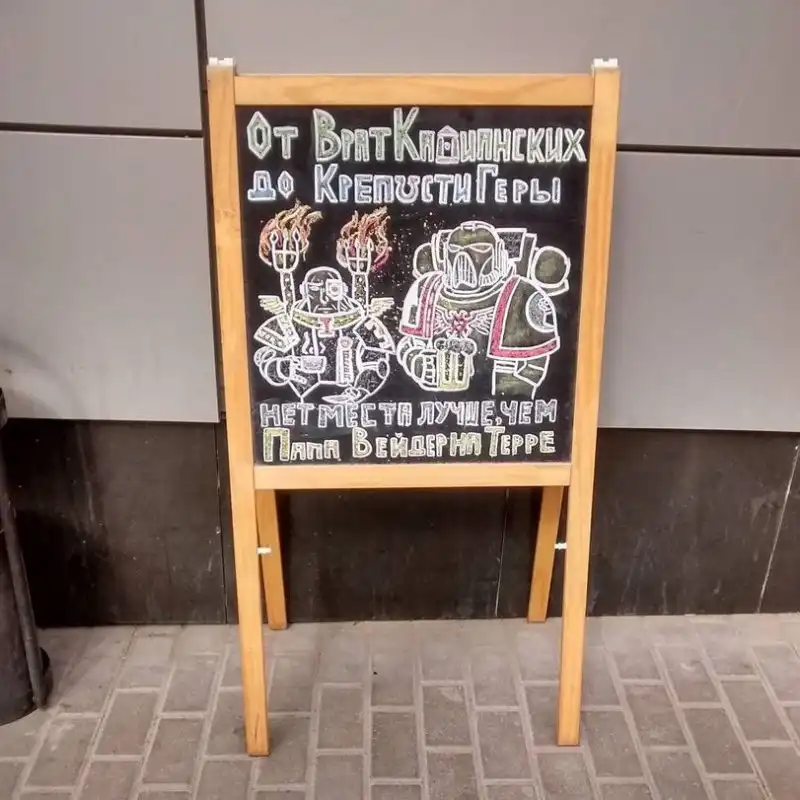 От Врат Кадианских
до Крепости Геры
нет места лучше, чем
Папа Вейдер на Терре